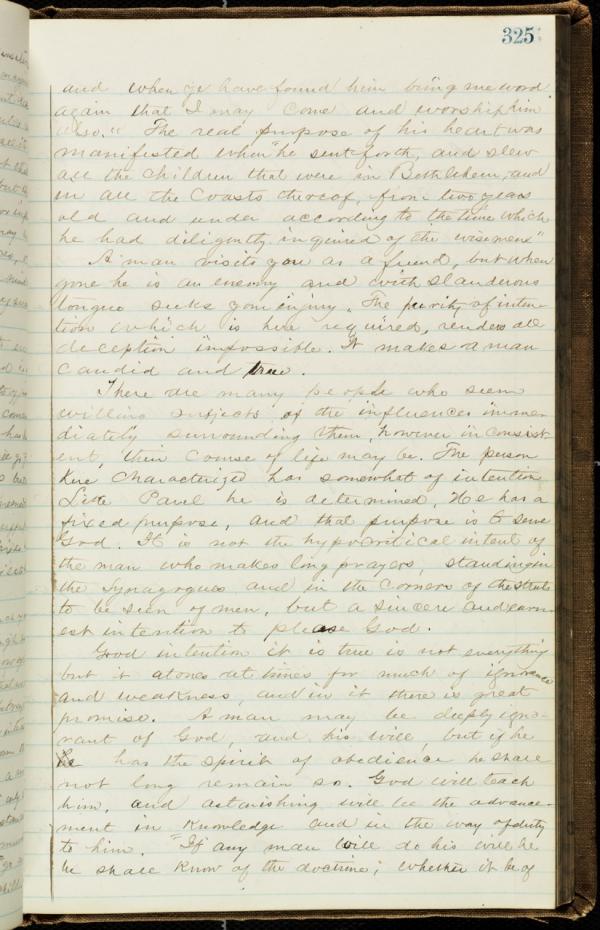 325
and when ye have found him bring me word
again that I may come and worship him
also." The real purpose of his heart was
manifested when "he sent forth, and slew
all the children that were in Bethlehem, and
in all the Coasts thereof, from two years
old and under according to the time which
he had diligently inquired of the wisemen"
A man visits you as a friend, but when
gone he is an enemy and with slanderous
tongue seeks your injury. The purity of inten-
tion which is here required, renders all
deception impossible. It makes a man
candid and true.
There are many people who seem
willing subjects of the influences imme-
diately surrounding them, however inconsist-
ent, their course of life may be. The person
here characterized has somewhat of intention
Like Paul he is determined, He has a
fixed purpose, and that purpose is to serve
God. It is not the hypocritical intent of
the man who makes long prayers, standing in
the Synagogues and in the corners of the streets
to be seen of men, but a sincere and earn-
est intention to please God.
Good intention it is true is not everything
but it atones at times for much of ignorance
and weakness, and in it there is great
promise. A man may be deeply igno-
rant of God, and his will, but if he
has the spirit of obedience he shall
not long remain so. God will teach
him, and astonishing will be the advance-
ment in knowledge and in the way of duty
to him. "If any man will do his will he
he shall know of the doctrine; whether it be of